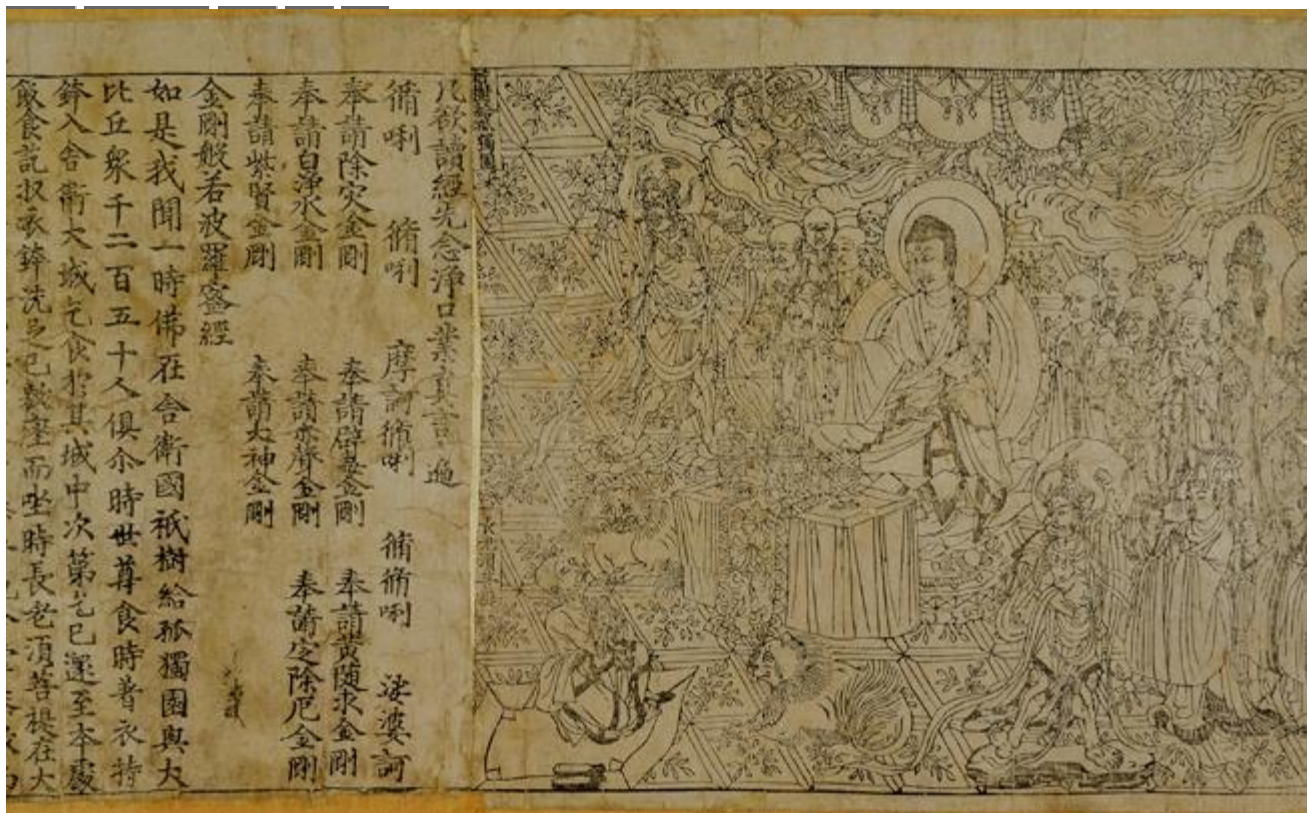 凡欲讀經先念淨口業真言 遍
脩唎 脩唎 摩訶脩唎 脩脩唎 娑婆訶
奉請除灾金剛 奉請辟毒金剛 奉請黃随求金剛
奉請白淨水金剛 奉請赤聲金剛 奉請定除厄金剛
奉請紫賢金剛 奉請大神金剛
金剛般若波羅蜜經
如是我聞一時佛在舍衛國祇樹給孤獨園與大
比丘衆千二百五十人俱尒時世尊食時著衣持
鉢入舍衛大城乞食於其城中次第乞已還至本處
飯食訖収衣鉢洗足已敷座而坐時長老須菩提在大